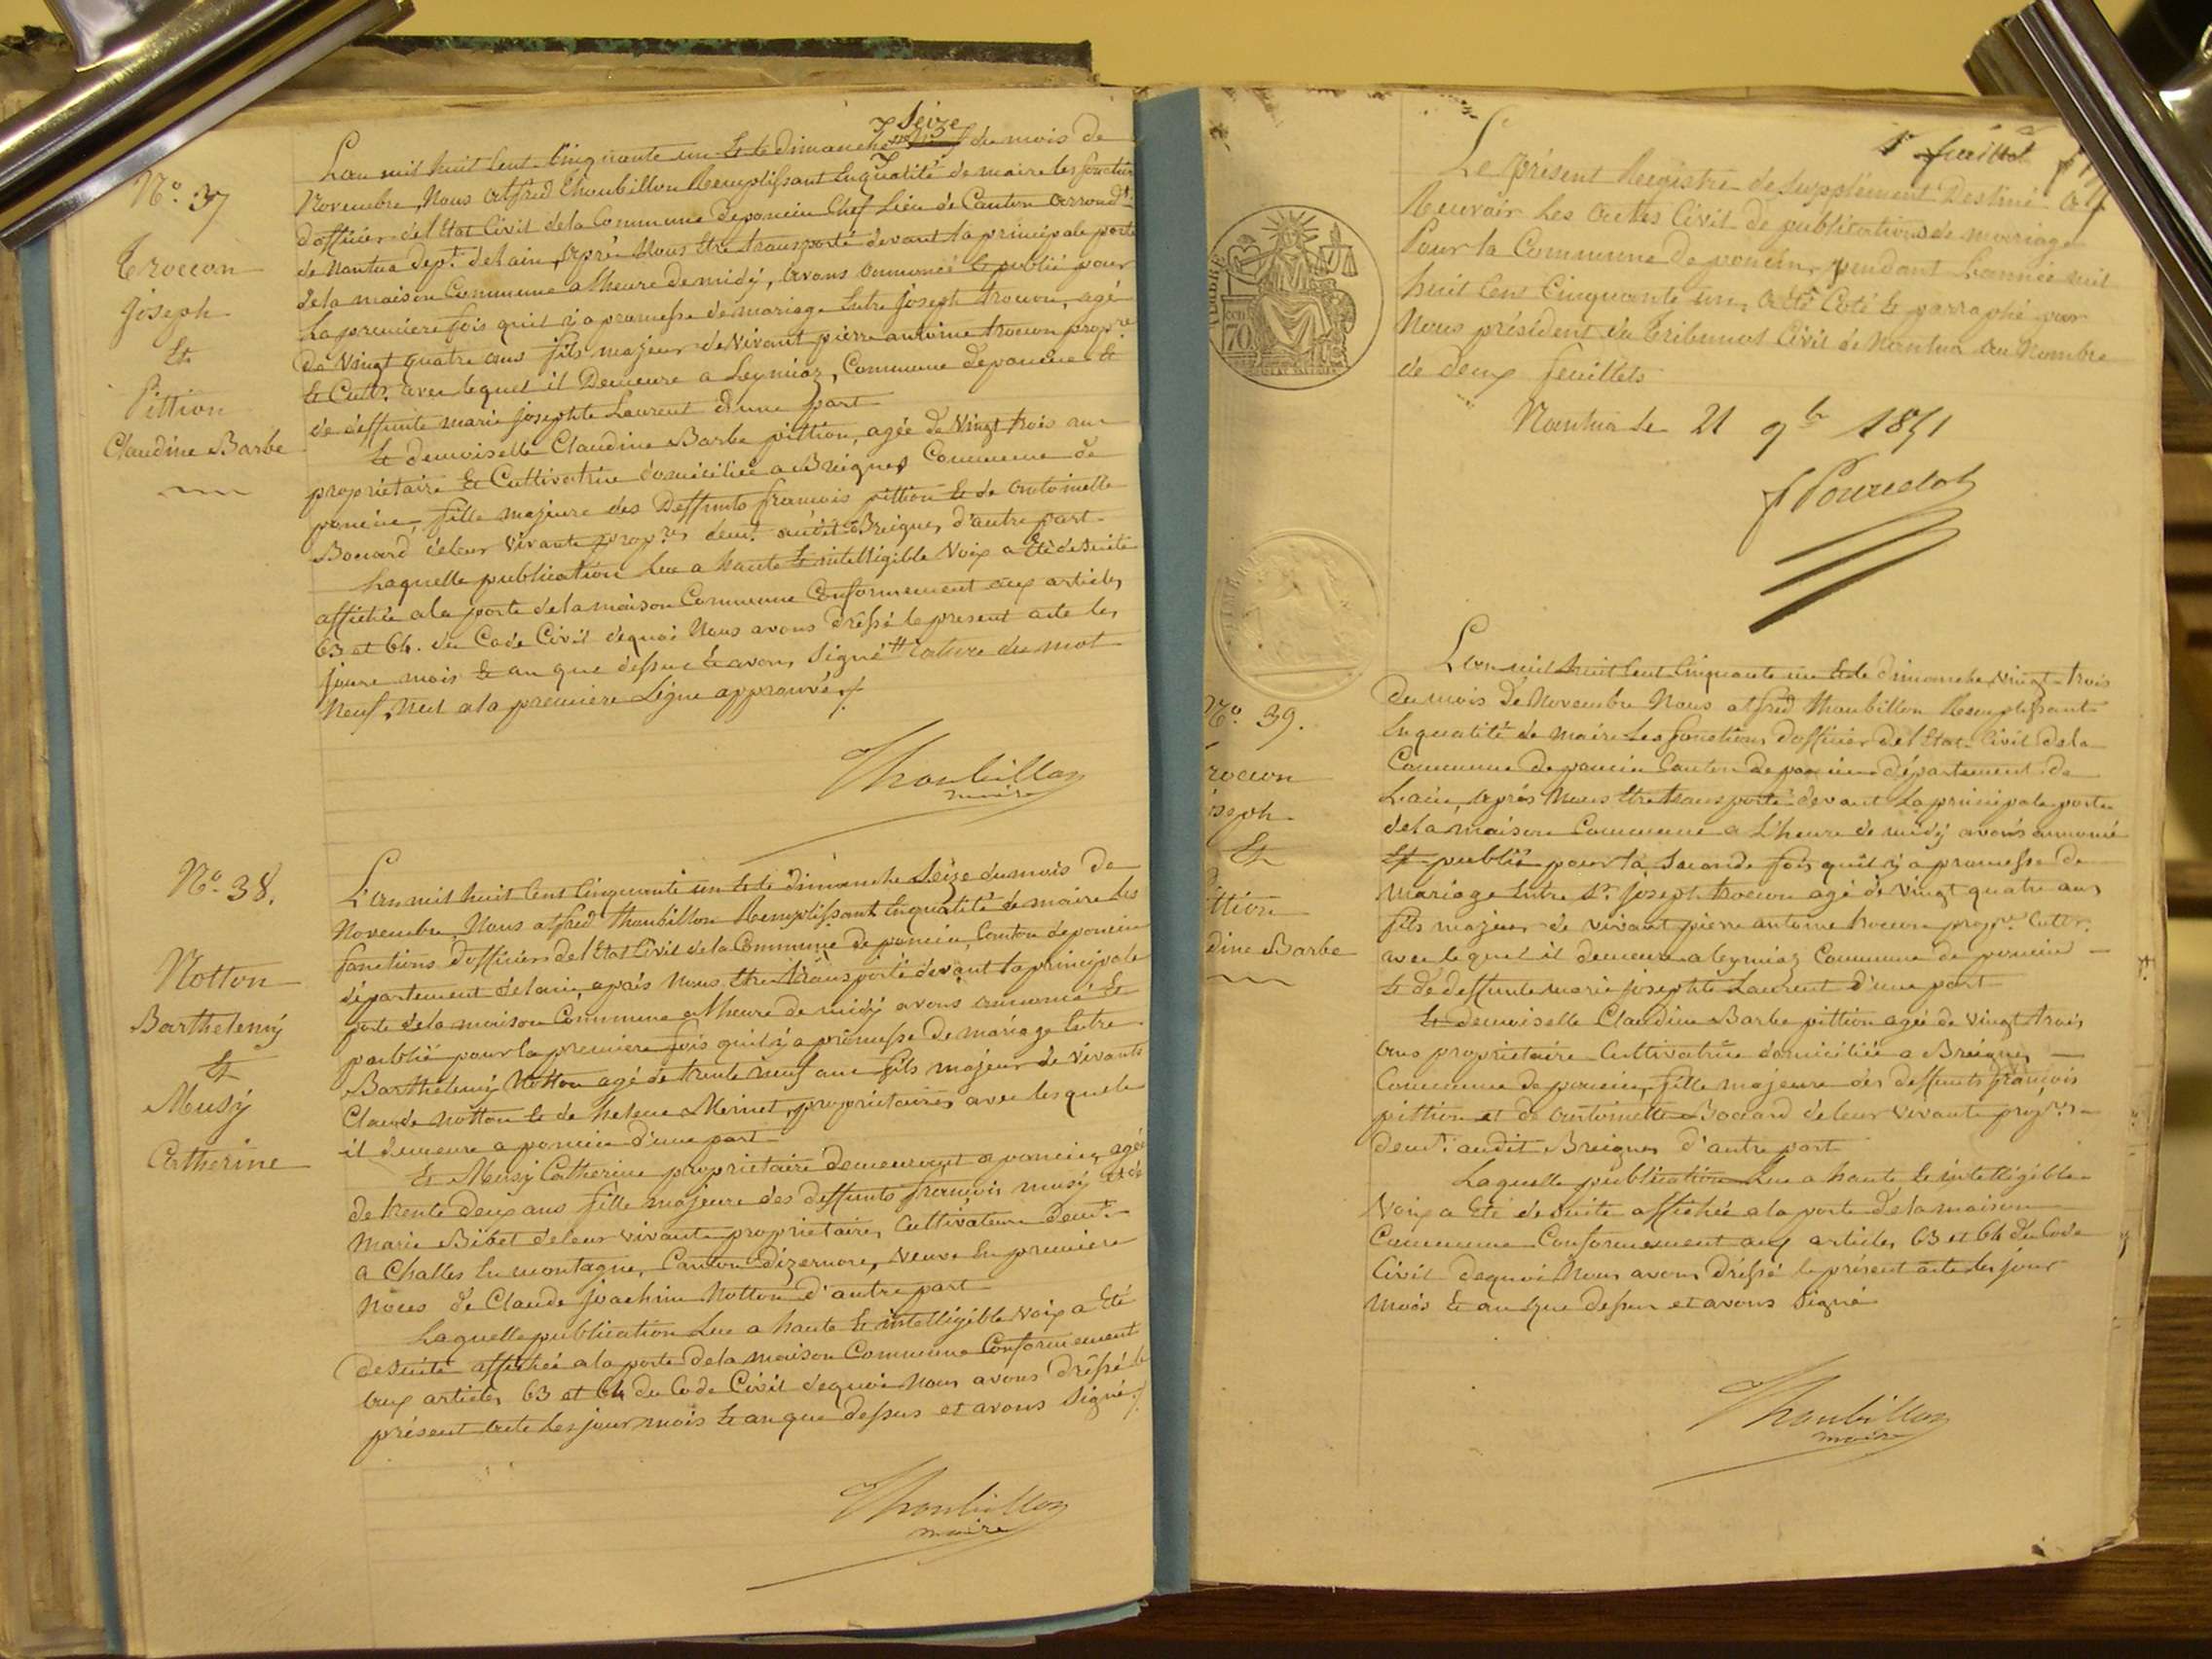 Seize
L'an mil huit Cent Cinquante un Et le dimanche neuf du mois de
Novembre, Nous alfred Thoubillon Remplissant Enqualité de maire les fonctions
d'officier de l'Etat Civil de la Commune deponcin Chef Lieu de Canton arrond.t
de Nantua dep.t delain, après Nous Etre transporté devant la principale porte
dela maison Commune a lheure de midy, avons annoncé Et publié pour
La premiere fois quil ÿ a promesse de mariage Entre Joseph trocon, agé
De Vingt quatre ans fils majeur de Vivant pierre antoine trocon propre
Et Cult.r avec lequel il Demeure a Leymiaz, Commune deponcin Et
de deffunte marie josephte Laurent d'une part
Et demoiselle Claudine Barbe pittion, agée de Vingt trois ans
propriétaire Et Cultivatrice domiciliée a Breignes Commune de
poncin, fille majeure des Deffunts françois pittion Et de antoinette
Bocard deleur vivants prop.res dem.t audit Breignes d'autre part
Laquelle publication Lue a haute Et intelligible Voix a Eté desuite
affichée ala porte dela maison Commune Conformement aux articles
63 et 64. du Code Civil dequoi Nous avons dréssé le present acte les
jour mois Et an que dessus Et avons Signé # rature du mot
Neuf, Nul ala premiere Ligne approuvé ./.
Thoubillon
maire
N.o 37
Trocon
Joseph
Et
Pittion
Claudine Barbe
N.o 38.
Notton
Barthelemÿ
Et
Musÿ
Catherine
L'an mil huit Cent Cinquante un Et le dimanche Seize dumois de
Novembre, Nous alfred Thoubillon Remplissant Enqualité de maire les
fonctions d'officier de l'Etat Civil dela Commune de poncin, Canton deponcin
département delain, après Nous Etre transporté devant la principale
porte dela maison Commune a lheure de midÿ avons annoncé Et
publié pour la premiere fois quil ÿ a promesse de mariage Entre
Barthelemÿ Notton agé de trente neuf ans fils majeur de vivants
Claude Notton Et de helene Mernet, propriétaires avec lesquels
il demeure a poncin d'une part
Et Musÿ Catherine propriétaire demeurant a poncin, agée
de trente deux ans fille majeure des deffunts françois musÿ Et de
Marie Bibet deleur vivants propriétaires Cultivateurs dem.t
a Challes La montagne, Canton d'izernore, Veuve En premiere
Noces de Claude Joachim Notton d'autre part
Laquelle publication Lue a haute Et intelligible Voix a Eté
desuite affichée ala porte dela maison Commune Conformement
aux articles 63 et 64 du Code Civil dequoi Nous avons dréssé le
présent acte les jour mois Et an que dessus et avons Signé ./.
Thoubillon
maire
1.r feuillet
Le présent Registre de Supplément Destiné a
Recevoir les actes Civil de publications de mariage
Pour la Commune de poncin, pendant Lannée mil
huit Cent Cinquante un, a été Coté Et parraphé par
Nous président du Tribunal Civil de Nantua au Nombre
de deux feuillets
Nantua le 21 9.bre 1851
TIMBRE
70
TIMBRE
N.o 39.
rocon
oseph
Et
ttion
dine Barbe
L'an mil huit Cent Cinquante un Et le dimanche Vingt-trois
du mois de Novembre Nous alfred Thoubillon Remplissant
Enqualité de maire Les fonctions d'officier de l'Etat Civil dela
Commune de poncin Canton de poncin département de
Lain, Après Nous Etre transporté devant La principale porte
dela maison Commune a L'heure de midÿ avons annoncé
Et publié pour la Seconde fois quil ÿ a promesse de
Mariage Entre S.r Joseph trocon agé de vingt quatre ans
fils majeur de vivant pierre antoine trocon prop.re Cult.r
avec lequel il demeure a leymiaz Commune de poncin
Et de deffunte marie josephte Laurent d'une part
Et demoiselle Claudine Barbe pittion agée de Vingt trois
ans propriétaire Cultivatrice domiciliée a Breignes
Commune de poncin, fille majeure des deffunts françois
pittion et de antoinette Bocard deleur vivants prop.res
dem.t audit Breignes d'autre part
Laquelle publication Lue a haute Et intelligible
Voix a Eté desuite affichée ala porte dela maison
Commune Conformement aux articles 63 et 64 du Code
Civil dequoi Nous avons dréssé le présent acte les jour
mois Et an que dessus et avons Signé
Thoubillon
maire